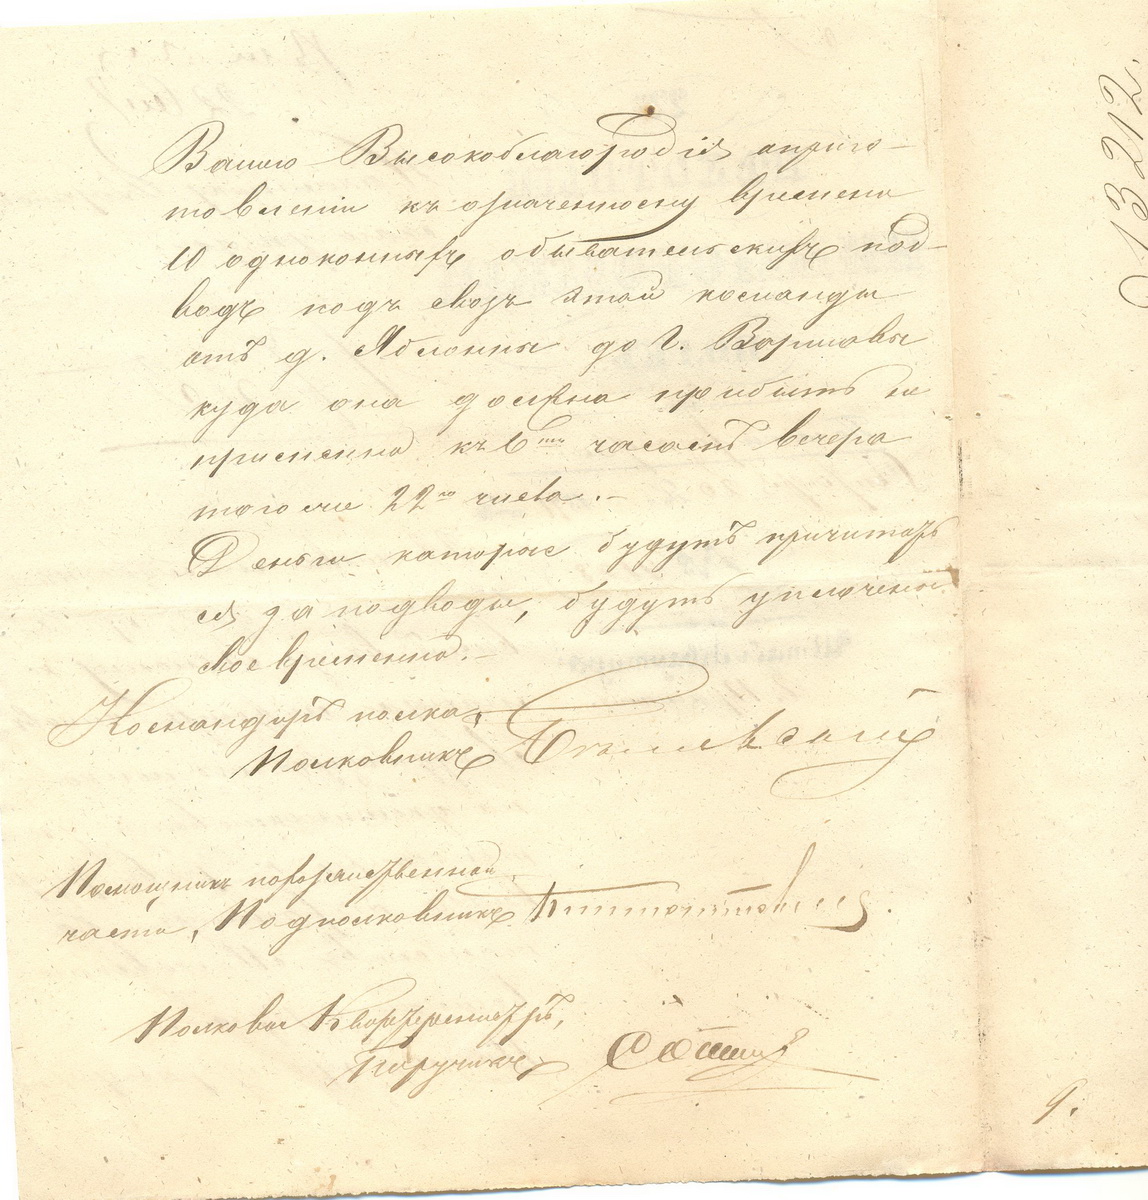 Вашего Высокоблагородія априго-
товленіи къ означенному времени
10 одноконныхъ обывательскихъ под-
водъ подъ своз этой команды
отъ д. Яблонны до г. Варшавы
куда она должна прибыть на
применно къ 6ти часамъ вечера
того же 22го числа.-
Деньги которые будутъ причитать
ся за подводы, будутъ уплочены
своевременно.-
Командиръ полка,
Полковникъ
Помощникъ по хозяйственной
части, Подполковникъ
Полковой Квартермистръ,
Поручикъ
9.
013212.